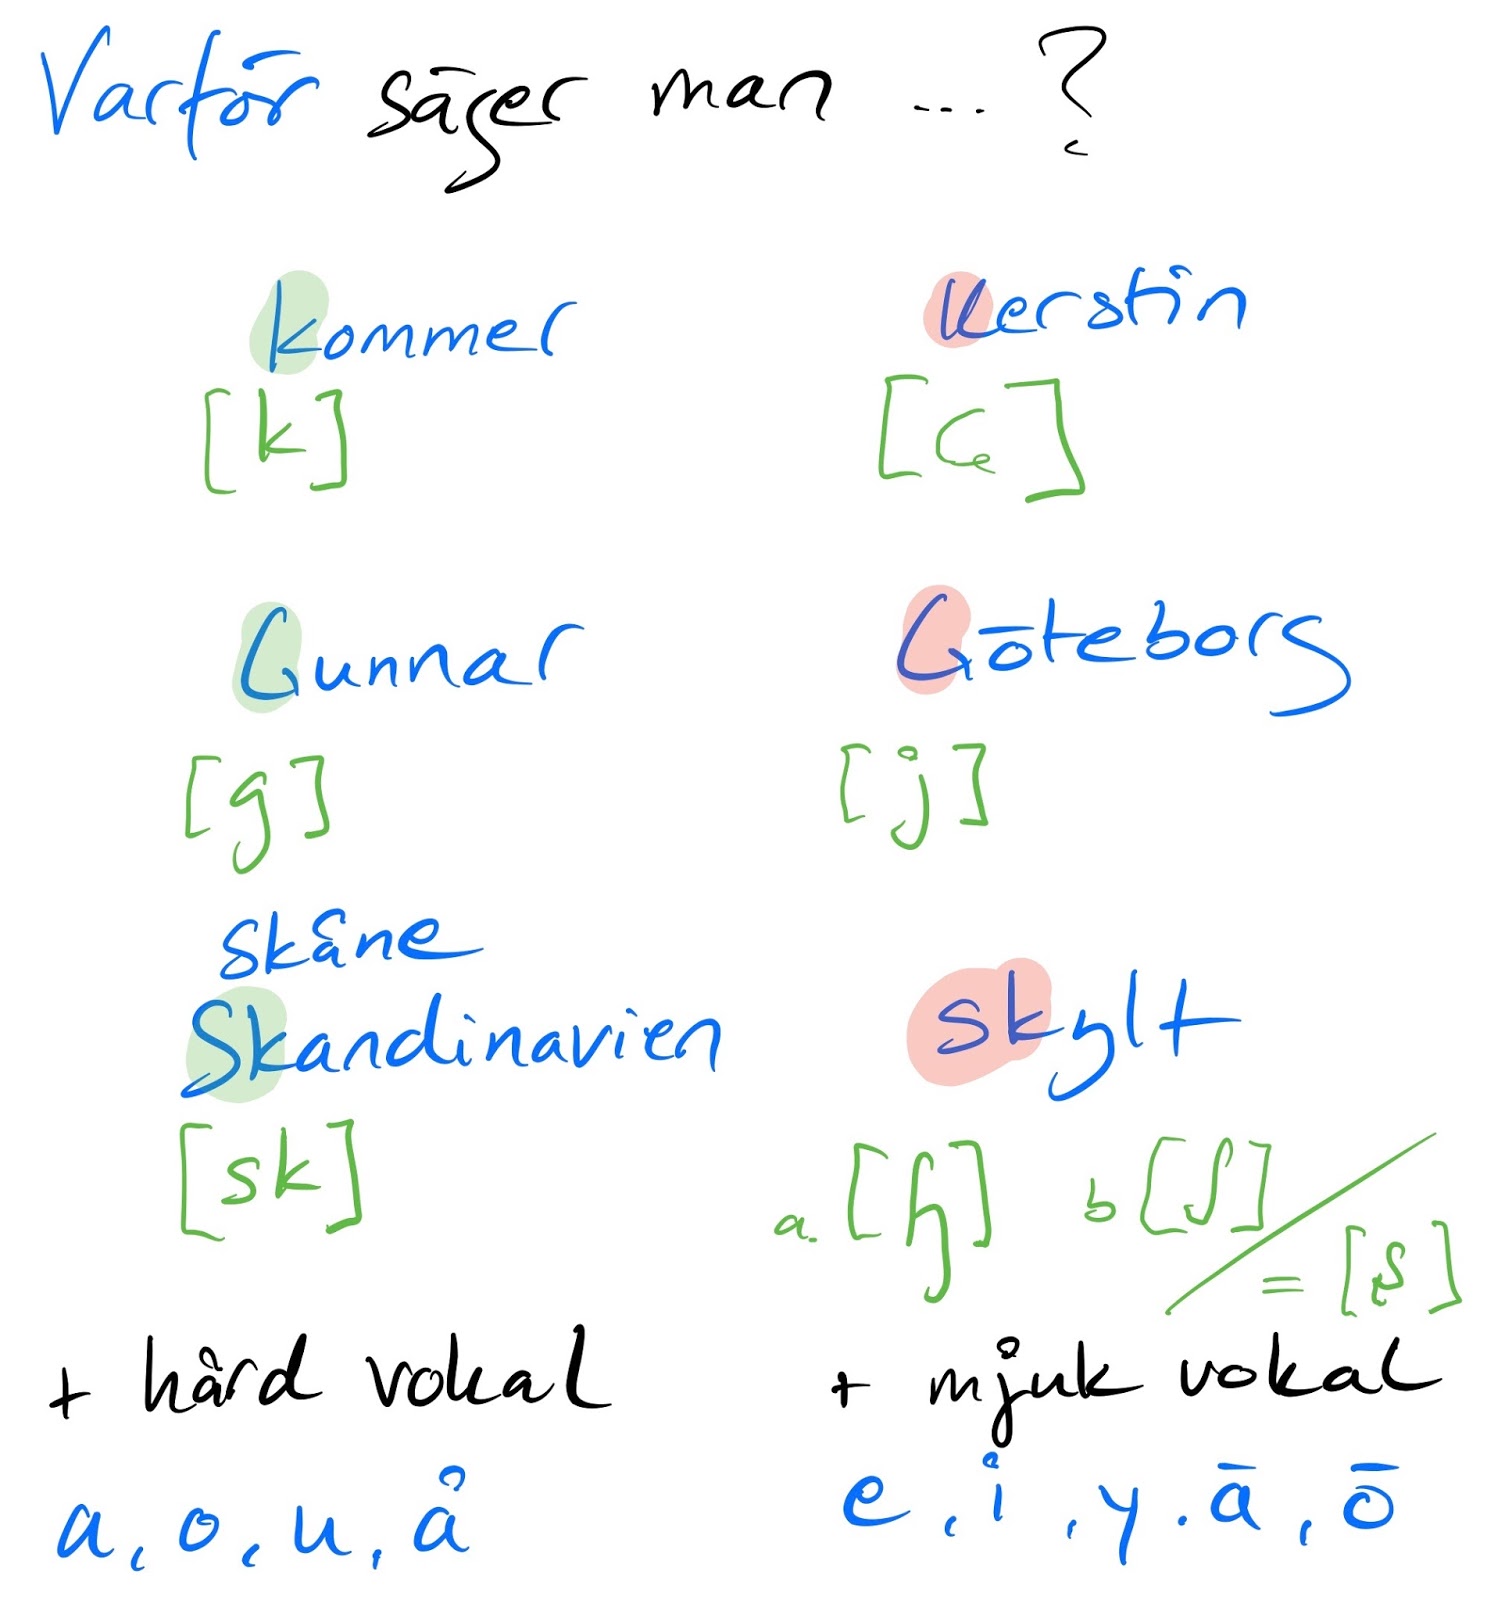 Varför säger man ... ?
kommer Kerstin
[k] [ç]
Gunnar Göteborg
[g] [j]
skåne
Skandinavien skylt
[sk] a. [ɧ] b [ʃ]
= [ʂ]
+ hård vokal + mjuk vokal
a, o, u, å e, i, y. ä, ö